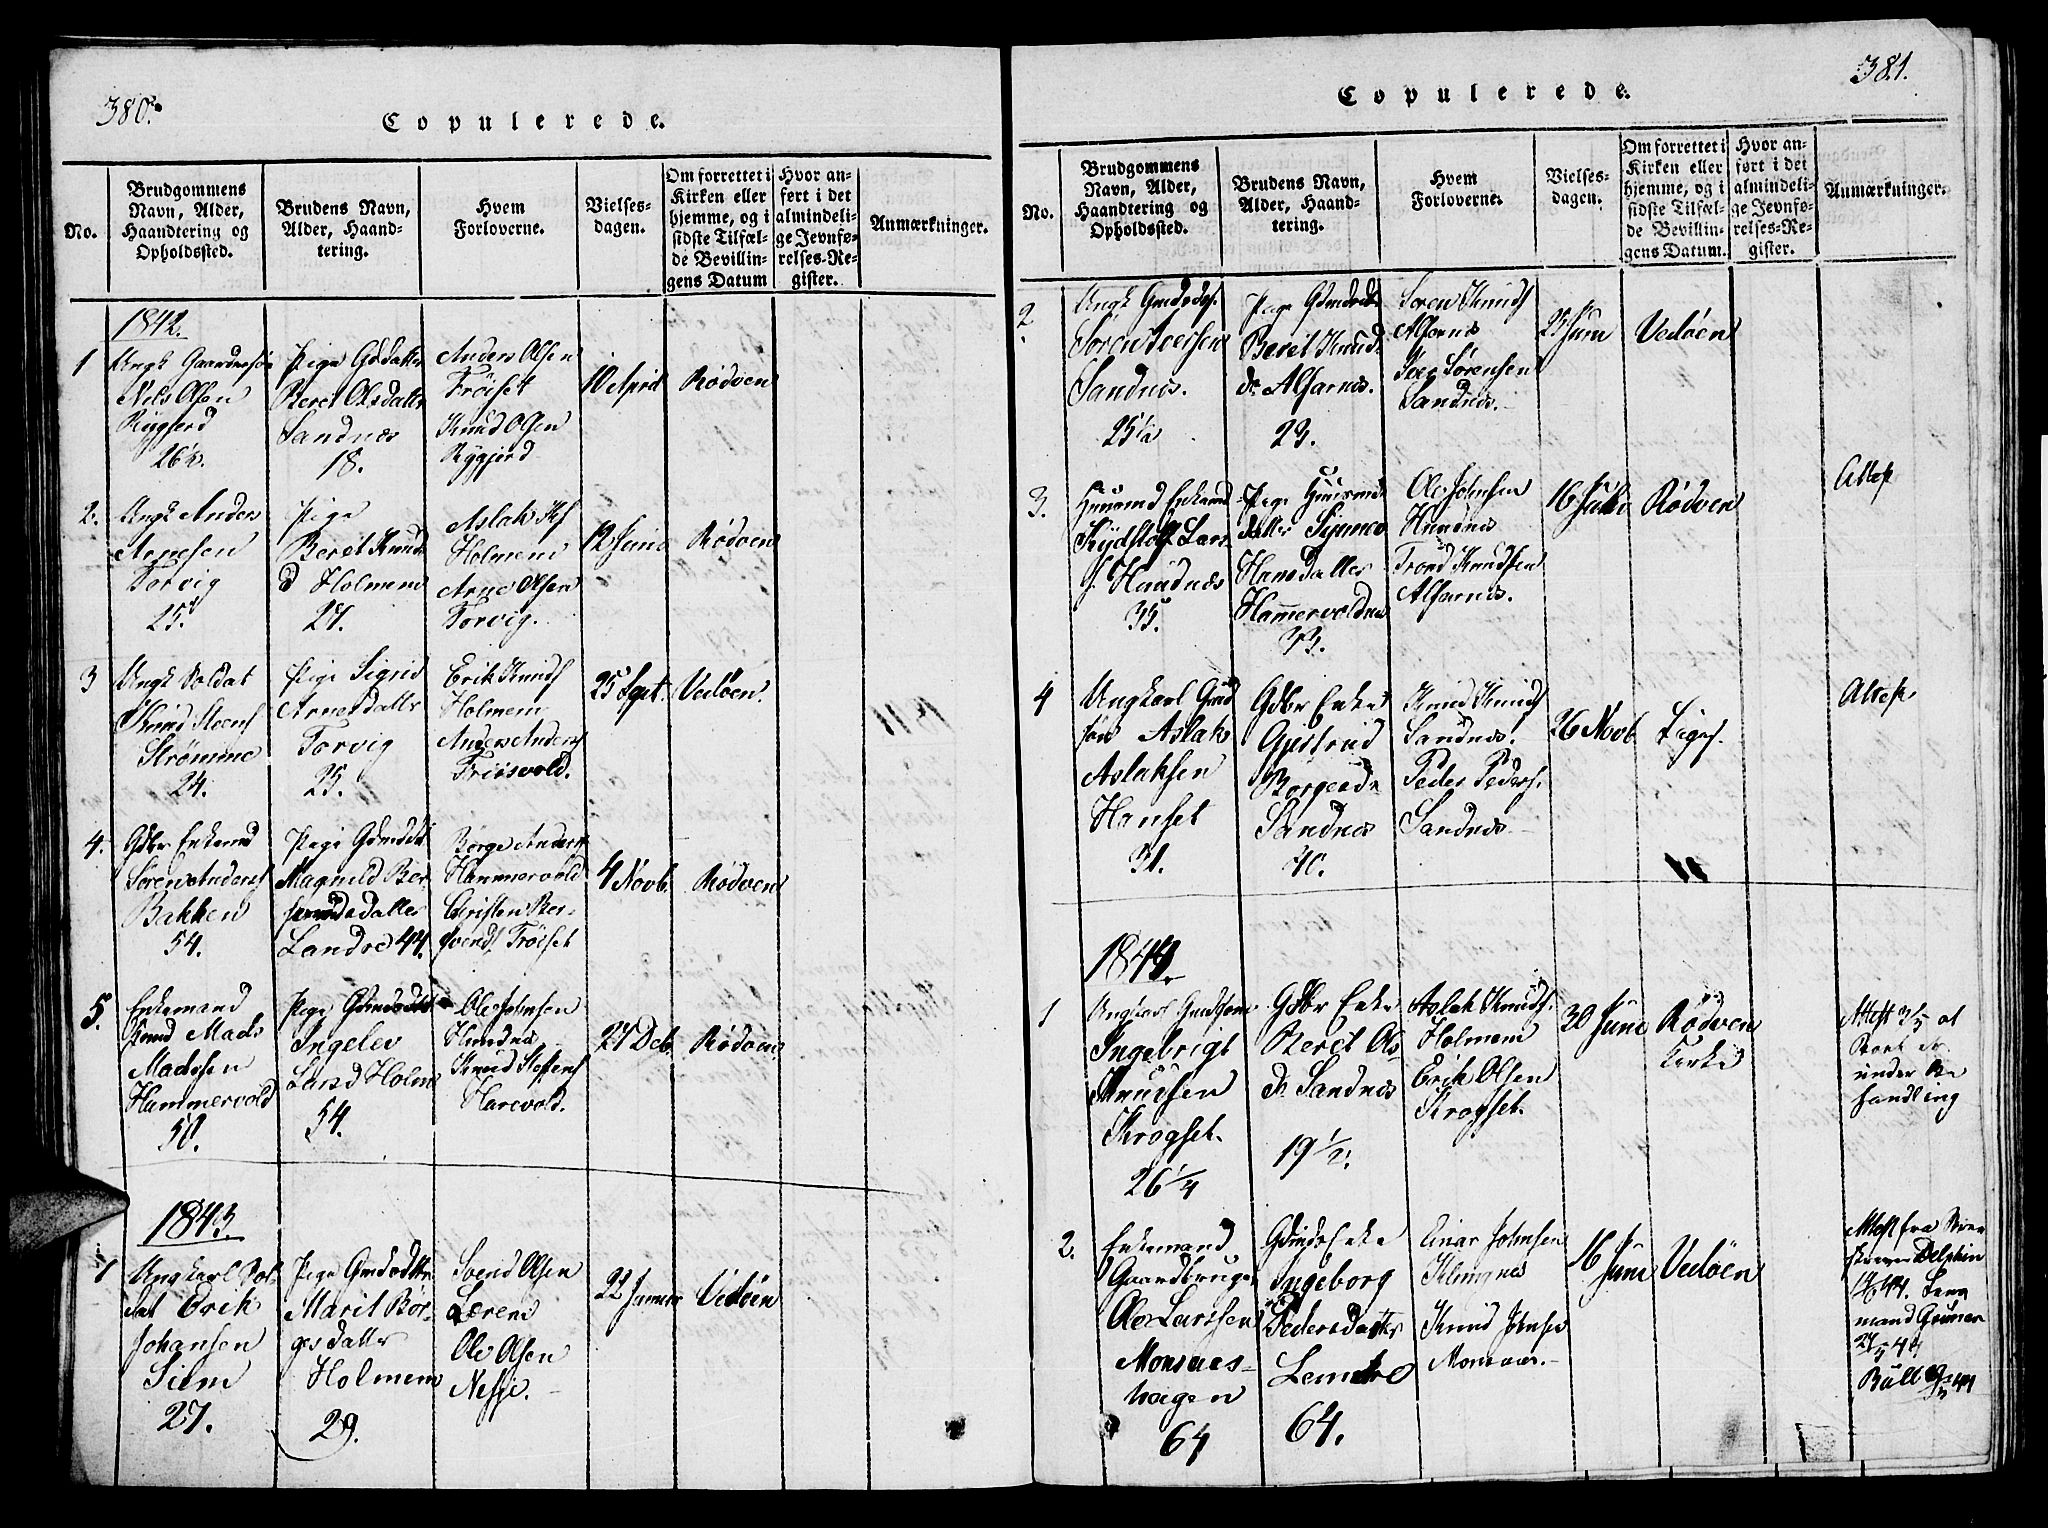 380.
Copulerede.
No.
Brudgommens
Navn, Alder,
Haandtering og
Opholdssted.
Brudens Navn,
Alder, Haand-
tering.
Hvem
Forloverne.
Vielses-
dagen.
Om forrettet i
Kirken eller
hjemme, og i
sidste Tilfæl-
de Bevillin-
gens Datum
Hvor an-
ført i det
almindeli-
ge Jevnfø-
relses-Re-
gister.
Anmærkninger.
1842.
1
Ungk Gaardmesøn
Nels Olsen
Rygjerd
26½.
Pige Gdatter
Beret Olsdatter
Sandnæs
18.
Anders Olsen
Tröiset
Knud Olsen
Rygjerd
10 April
Rødven
2.
Ungk Anders
Arnesen
Torvig
25.
Pige
Beret Knud
d Holmem
27.
Aslak Kf
Holmem
Arne Olsen
Torvig.
12 Juni
Rødven
3
Ungk Soldat
Knud Steens
Strømme
24.
Pige Sigrid
Arnesdatter
Torvig
25.
Erik Knuds
Holmem
Anders Anders
Friisvold.
25 Sept.
Vedöen.
4.
Gdbr Enkemd
Søren Anders
Bakken
54.
Pige Gdmdtt
Magnild Ber
sendsdatter
Landre 44.
Børge Anders
Hammervold
Christen Ber-
svends Tröiset
4 Novb.
Rødven
5.
Enkemand
Mads
Madssen
Hammervold
50.
Pige
Ingelev
Larsd Holm
54.
Ole Johnsen
Hundnes
Knud Steffens
Harevold.
27 Deb.
Rødven
1843.
1
Ungkarl Sol-
dat Erik
Johansen
Siem
27.
Pige Gmdsdttr
Marit Bør-
gesdattr
Holmem
29.
Svend Olsen
Lerem
Ole Olsen
Nesje.
22 Januar
Vedöen
381.
Copulerede.
No.
Brudgommens
Navn, Alder,
Haandtering og
Opholdssted.
Brudens Navn,
Alder, Haand-
tering.
Hvem
Forloverne.
Vielses-
dagen.
Om forrettet i
Kirken eller
hjemme, og i
sidste Tilfæl-
de Bevillin-
gens Datum.
Hvor an-
ført i det
almindeli-
ge Jevnfø-
relses-Re-
gister.
Anmærkninger.
2.
Ungk
Søren Iversen
Sandnæs.
25½
Pige
Beret Knud
dr Alfarnes.
23.
Soren Knuds
Alfarnes
Iver Sörensen
Sandnes.
25 Juni
Vedöen
3.
Huusmd Enkemd
Kydstolf Lars
s. Haadnæs
35.
Pige Huusmds
datter Synnev
Hansdatter
Hammervoldne
33.
Ole Johnsen
Hundnes
Trond Knudsen
Alfarnes.
16 Juli
Rødven
Attest
4
Ungkarl Gmd
søn Aslak
Aslaksen
Hanset
31.
Gdbr Enke
Gjertrud
Sandnæs
40.
Knud Knuds
Sandnes.
Peder Peders.
Sandnes
26 Novb
Ligesf.
Attest
1844.
1
Ungkarl Gmdsøn
Ingebrigt
Knudsen
Krogset.
26¼
Gdbr Enke
Beret Ols
D. Sandnæs
19½.
Aslak Knuds.
Holmem
Erik Olsen
Krogset.
30 Juni
Rødven
Kirke
Attest 3/5 at
Boet er
under Be
handling
2.
Enkemand
Gaardbruger
Ole Larssen
Monsaas-
hagen
64
Gdmds Enke
Ingeborg
Pedersdatter
Lemdre
64.
Einar Johnsen
Klungnes
Knud Johnsen
Monsaas.
16 Juni
Vedöen
Attest fra Soren
skriver Delphin
Lens
mand Grüner
27/5 44